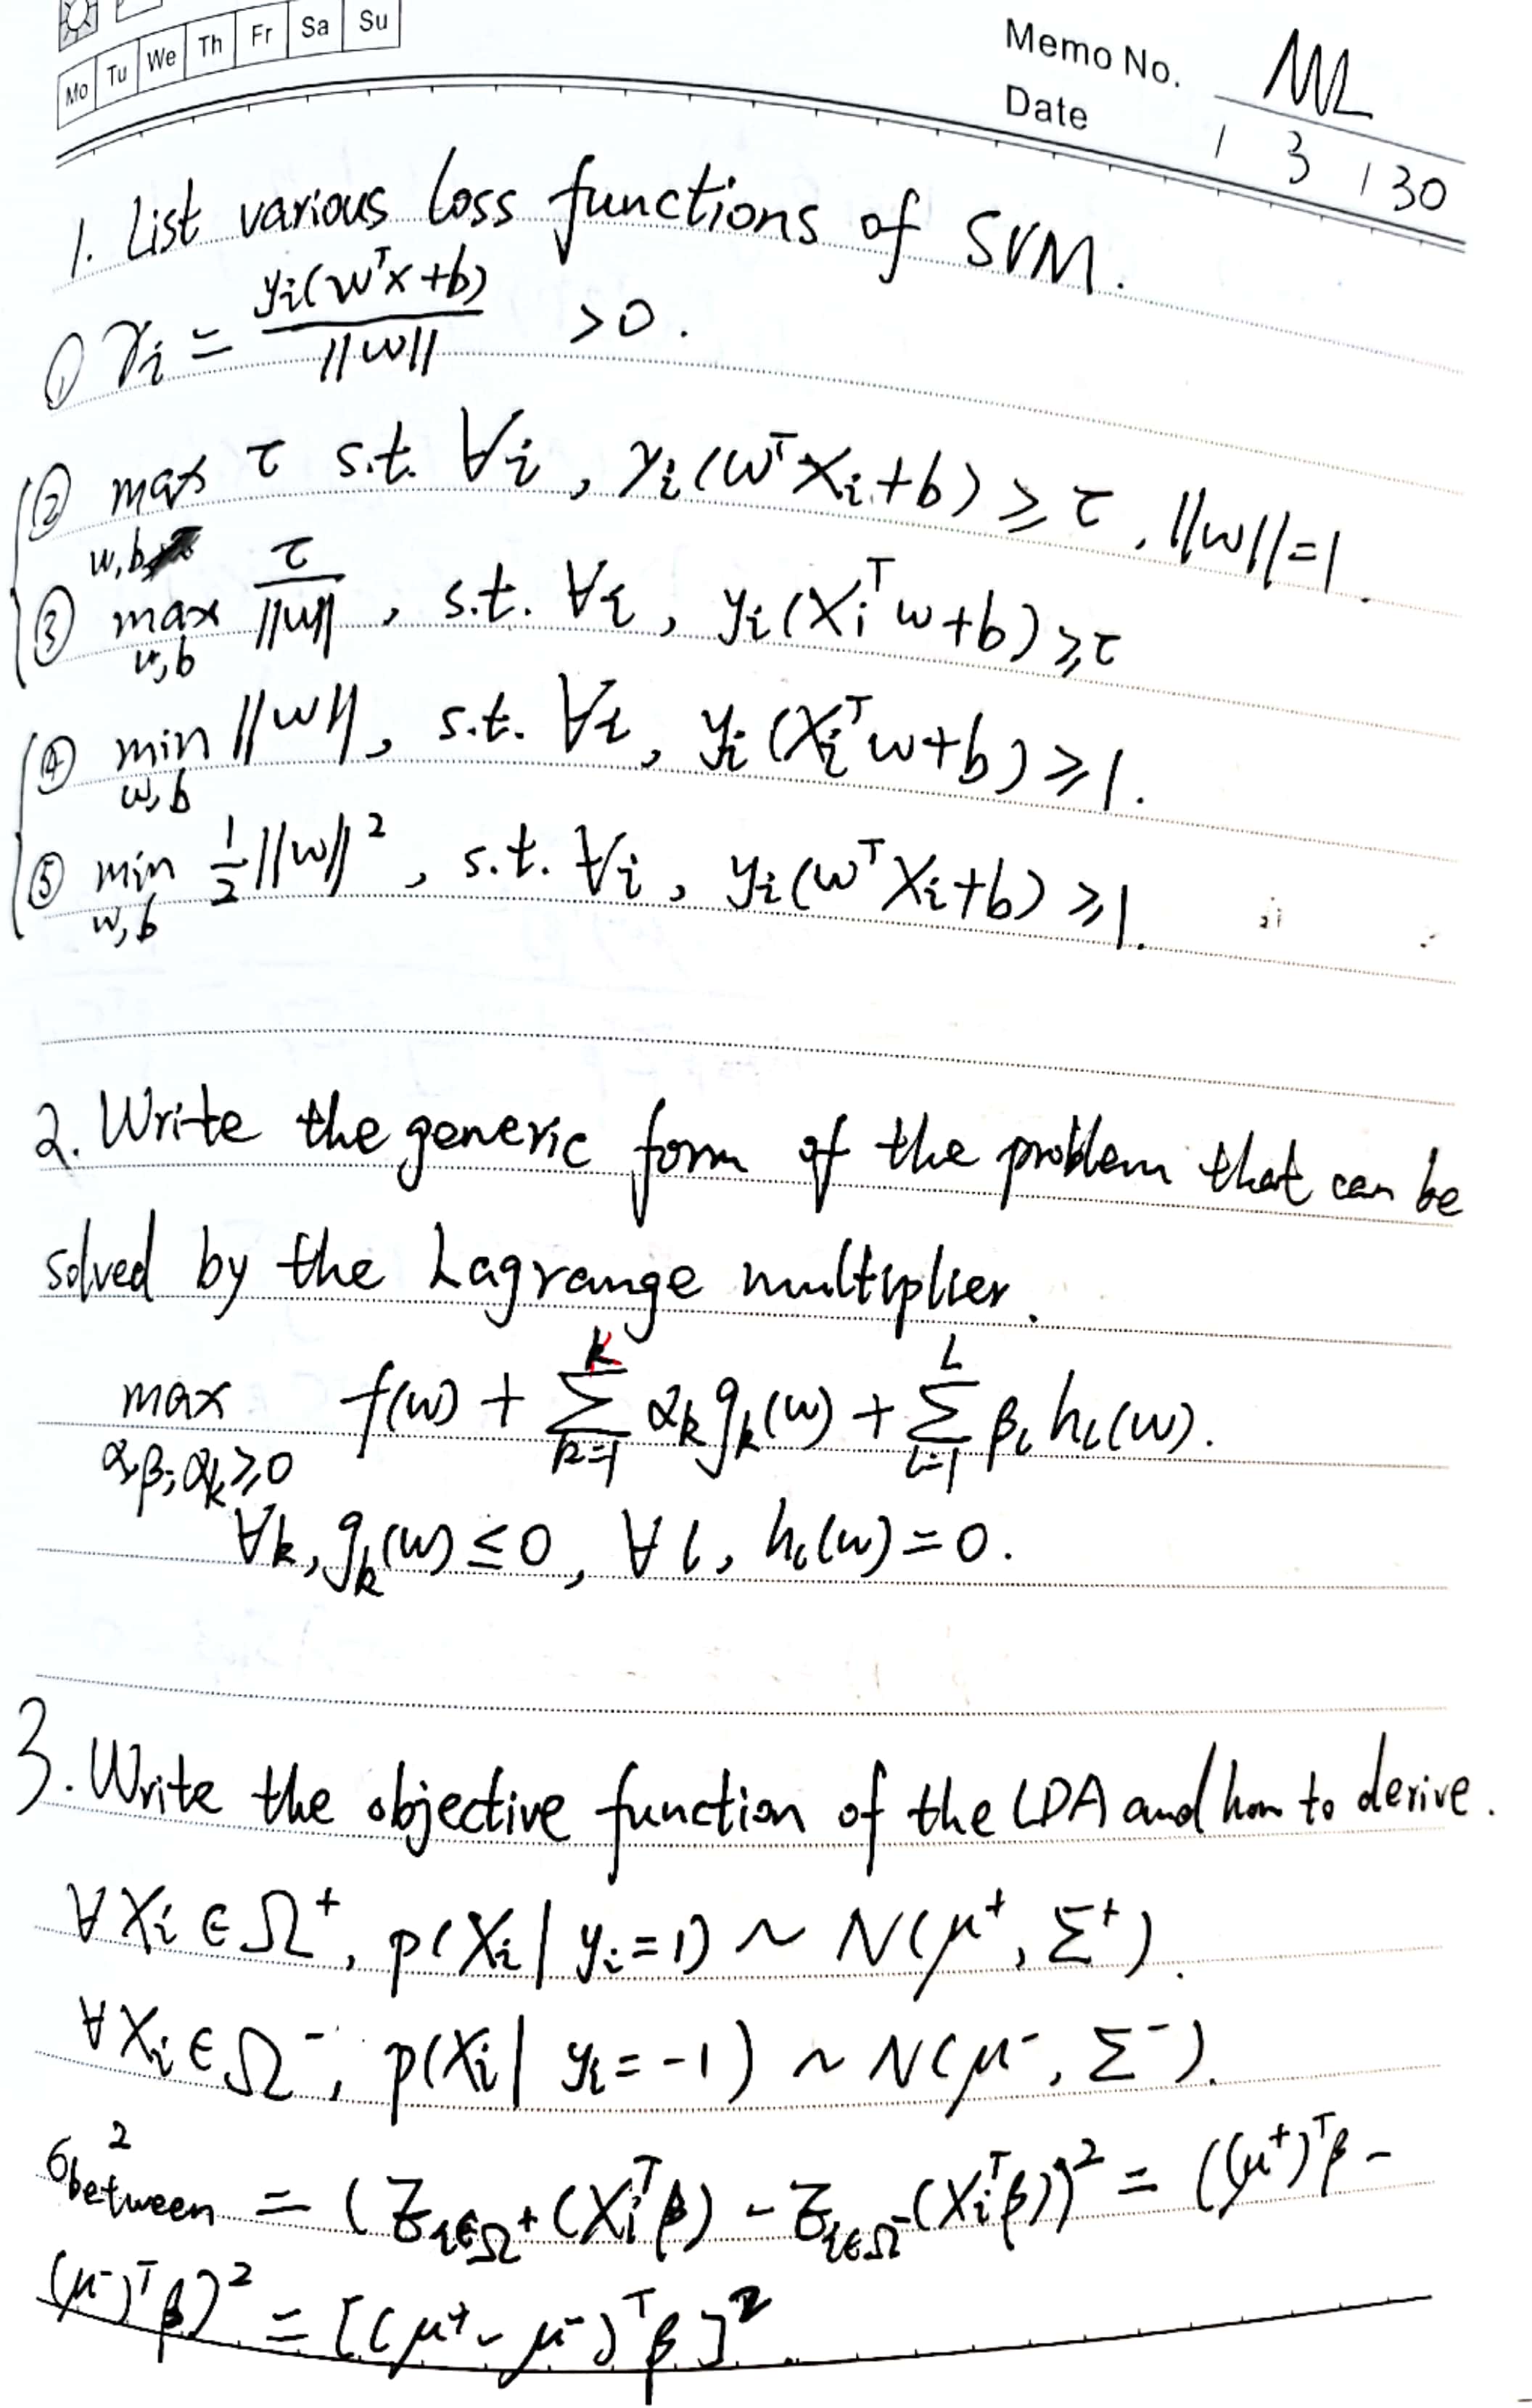 Mo Tu We Th Fr Sa Su
Memo No. ML
Date / 3 / 30
1. List various loss functions of SVM.
① γi = yi(wᵀx+b) / ||w|| >0.
② max w,b τ s.t. ∀i, yi(wᵀXi+b) ≥ τ, ||w||=1.
③ max w,b τ/||w||, s.t. ∀i, yi(Xiᵀw+b) ≥ τ
④ min w,b ||w||, s.t. ∀i, yi(Xiᵀw+b) ≥ 1.
⑤ min w,b 1/2||w||², s.t. ∀i, yi(wᵀXi+b) ≥ 1.
2. Write the generic form of the problem that can be
solved by the Lagrange multiplier.
max α,β;αk≥0 f(w) + Σ_{k=1}^{K} αk gk(w) + Σ_{l=1}^{L} βl hl(w).
∀k, gk(w) ≤ 0, ∀l, hl(w)=0.
3. Write the objective function of the LDA and how to derive.
∀Xi∈Ω⁺, p(Xi|yi=1) ~ N(μ⁺, Σ⁺).
∀Xi∈Ω⁻, p(Xi|yi=-1) ~ N(μ⁻, Σ⁻).
σ²between = (E_{i∈Ω⁺}(Xiᵀβ) - E_{i∈Ω⁻}(Xiᵀβ))² = ((μ⁺)ᵀβ -
(μ⁻)ᵀβ)² = [(μ⁺-μ⁻)ᵀβ]²